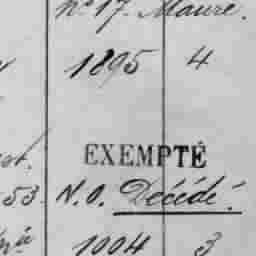 n° 17. Maure.
1895 4
EXEMPTÉ
53. N.O. Décédé.
1004 3